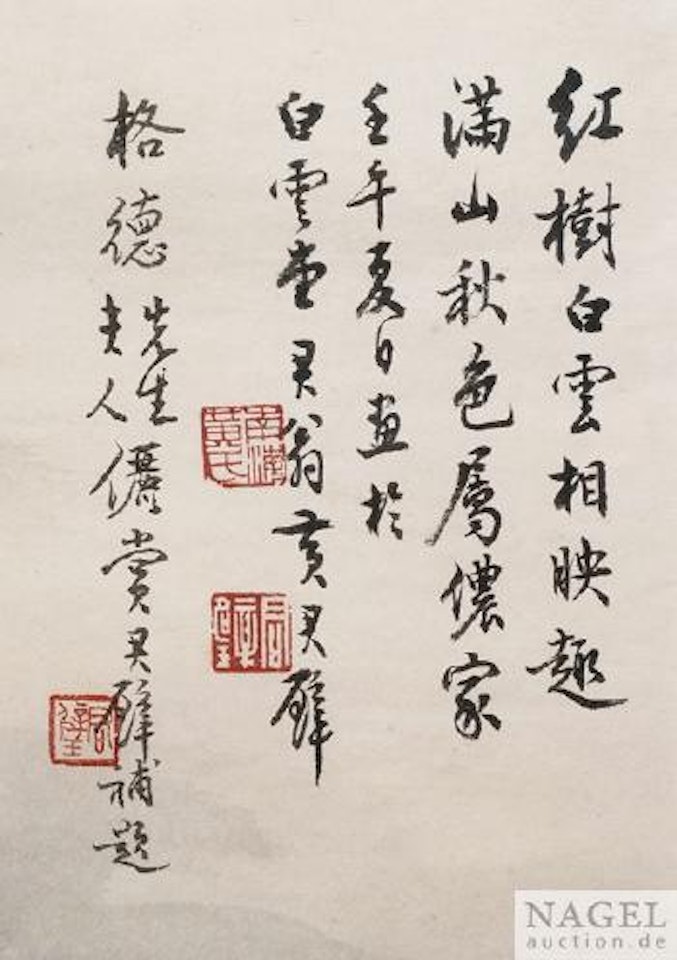 红樹白雲相映趣
满山秋色屬儂家
壬午夏日畫於
白雲堂君翁黃君璧
格德先生夫人儷賞君璧補題
黃氏
君璧
NAGEL
auction.de